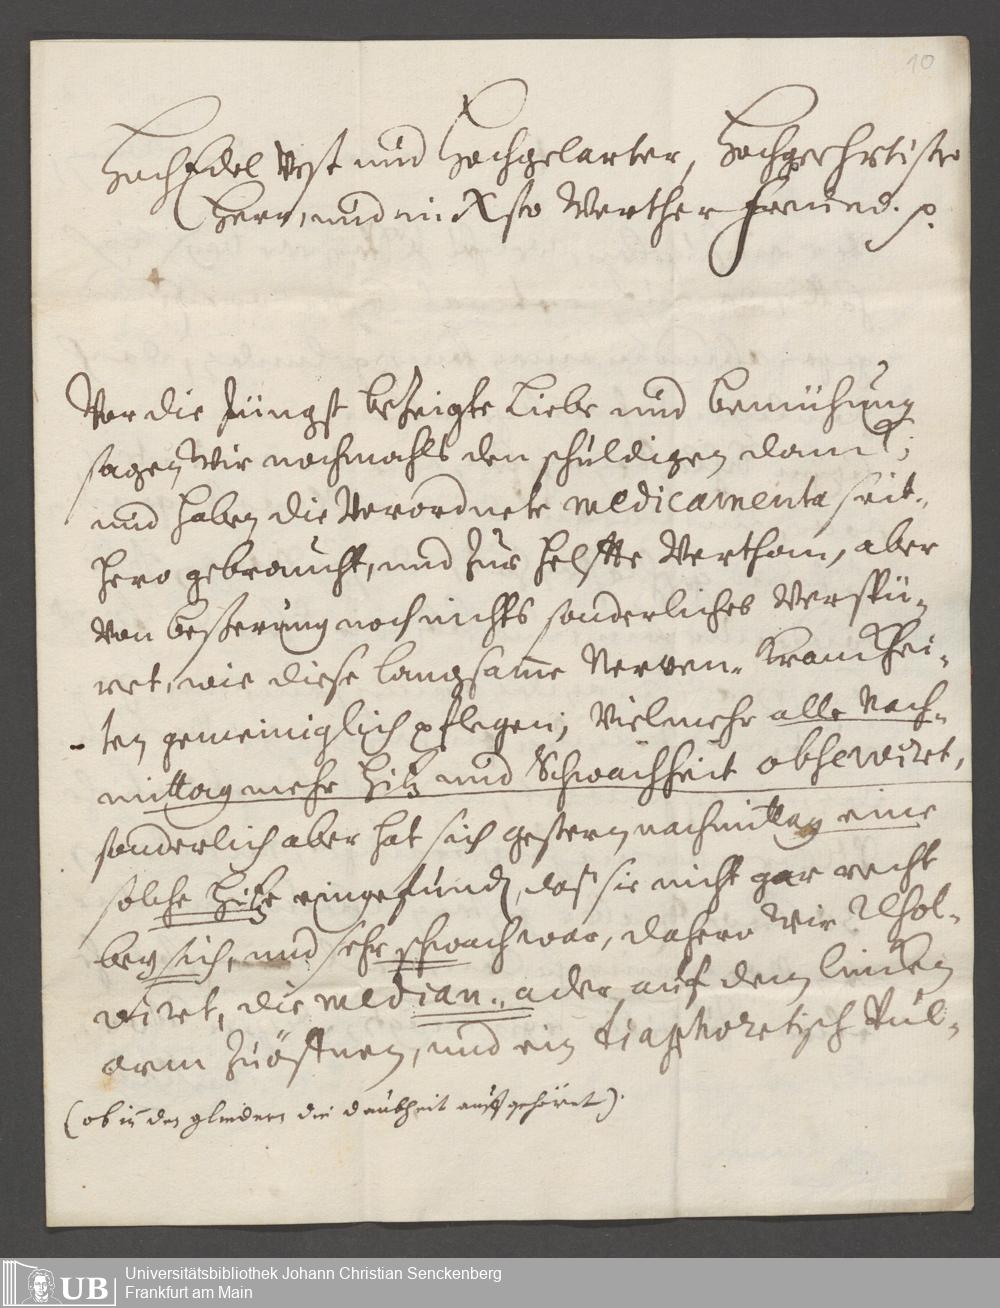 10
HochEdel Vest und Hochgelarter, Hochgeehrtister
Herr, und in Xsto Werther Freund. p.
Vor die Jüngst bezeigte Liebe und bemühung
sagen Wir nochmahls den schuldigen danck;
und haben die Verordnete medicamenta seit-
hero gebraucht, und zur helffte Verthan, aber
von beßerung noch nichts sonderliches Verspü-
ret, wie diese langsame Nerven-Kranckhei-
ten gemeiniglich pflegen; Vielmehr alle Nach-
mittag mehr Hitz und Schwachheit observiret,
sonderlich aber hat sich gestern nachmittag eine
solche Hitze eingefunden, daß sie nicht gar recht
bey sich, und sehr schwach war, dahero Wir
viret, die median-ader auf dem lincken
arm zuöffnen, und ein diaphoretisch Pul-
(ob in den gliedern die daubheit auffgehöret).
UB
Universitätsbibliothek Johann Christian Senckenberg
Frankfurt am Main